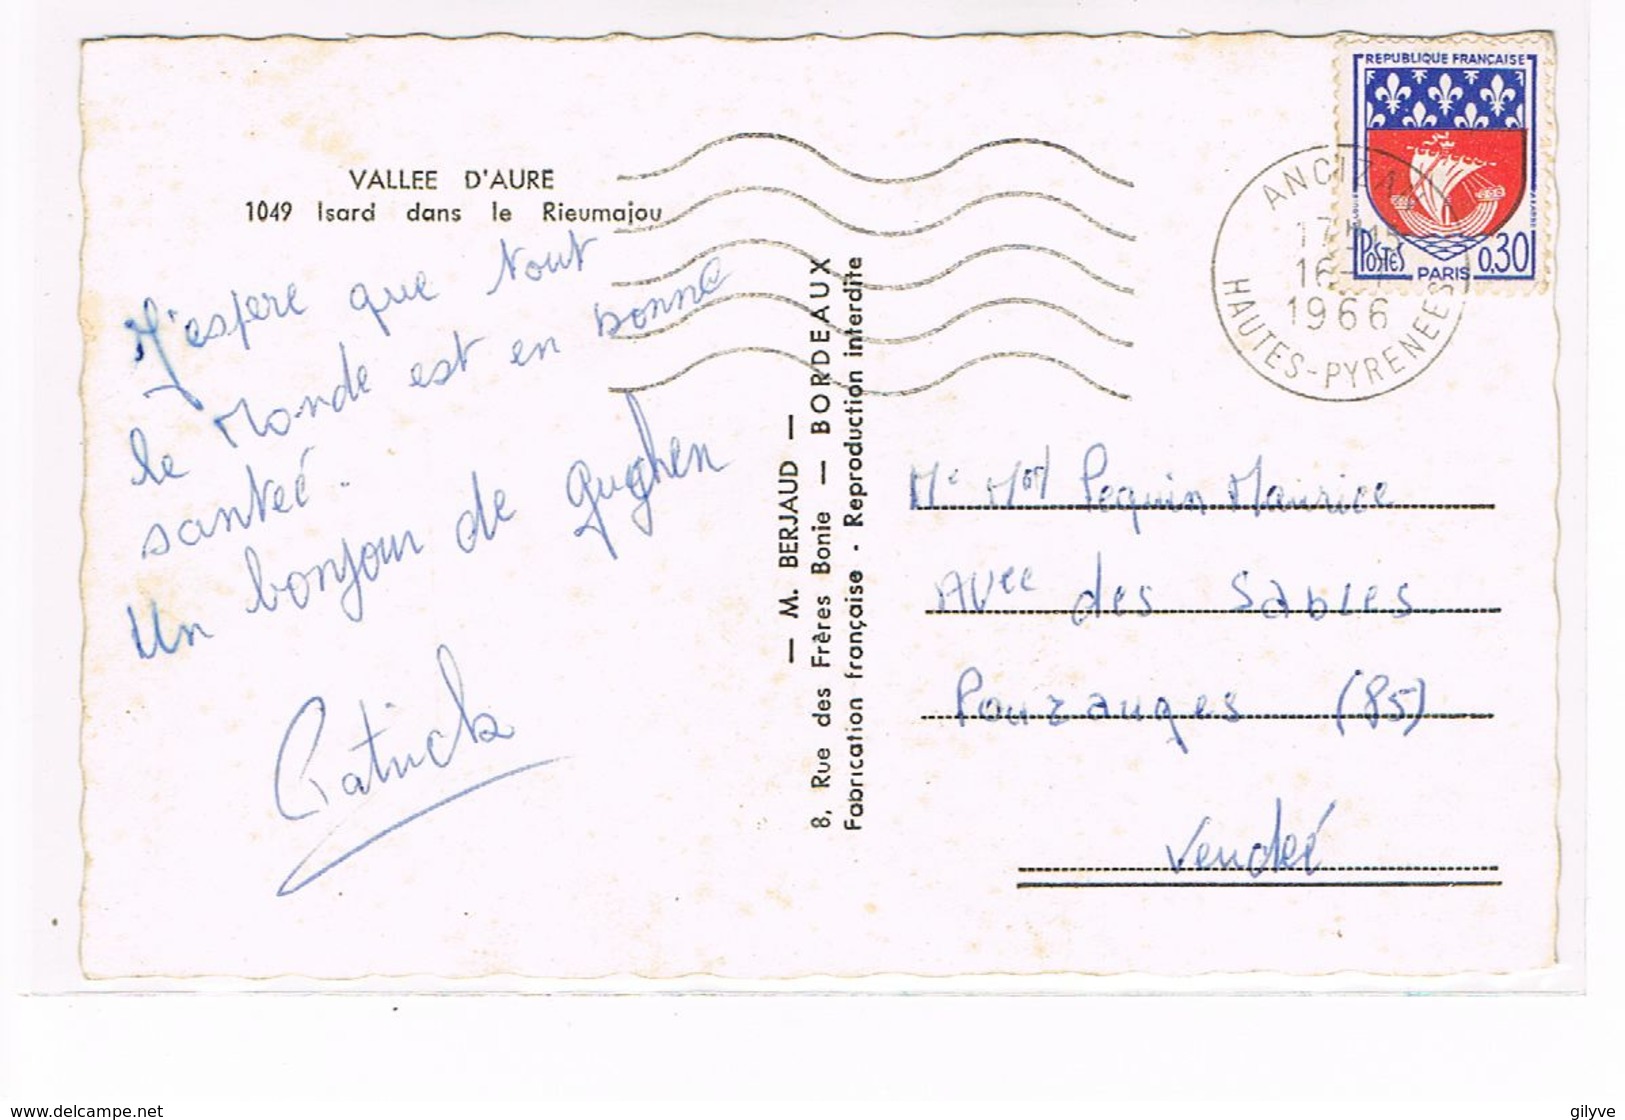 VALLEE D'AURE
1049 Isard dans le Rieumajou
J'espere que tout
le Monde est en bonne
santeé.
Un bonjour de Gughen
Patrick
— M. BERJAUD —
8, Rue des Frères Bonie — BORDEAUX
Fabrication française - Reproduction interdite
REPUBLIQUE FRANÇAISE
POSTES
PARIS
0,30
17H15
16
1966
HAUTES-PYRENEES
Pequin Maurice
AVee des Sables
Pouzauges (85)
Vendeé
www.delcampe.net
gilyve